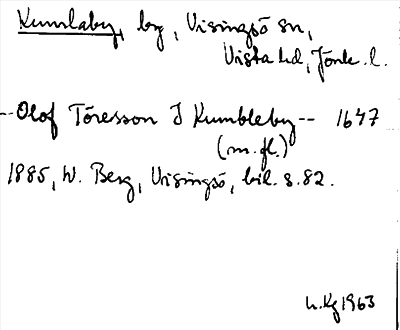 Kumlaby, by, Visingsö sn,
Vista hd, Jönk. l.
--Olof Töresson J Kumbleby-- 1647
(m. fl.)
1885, W. Berg, Visingsö, bil. s. 82.
h. Kg 1963